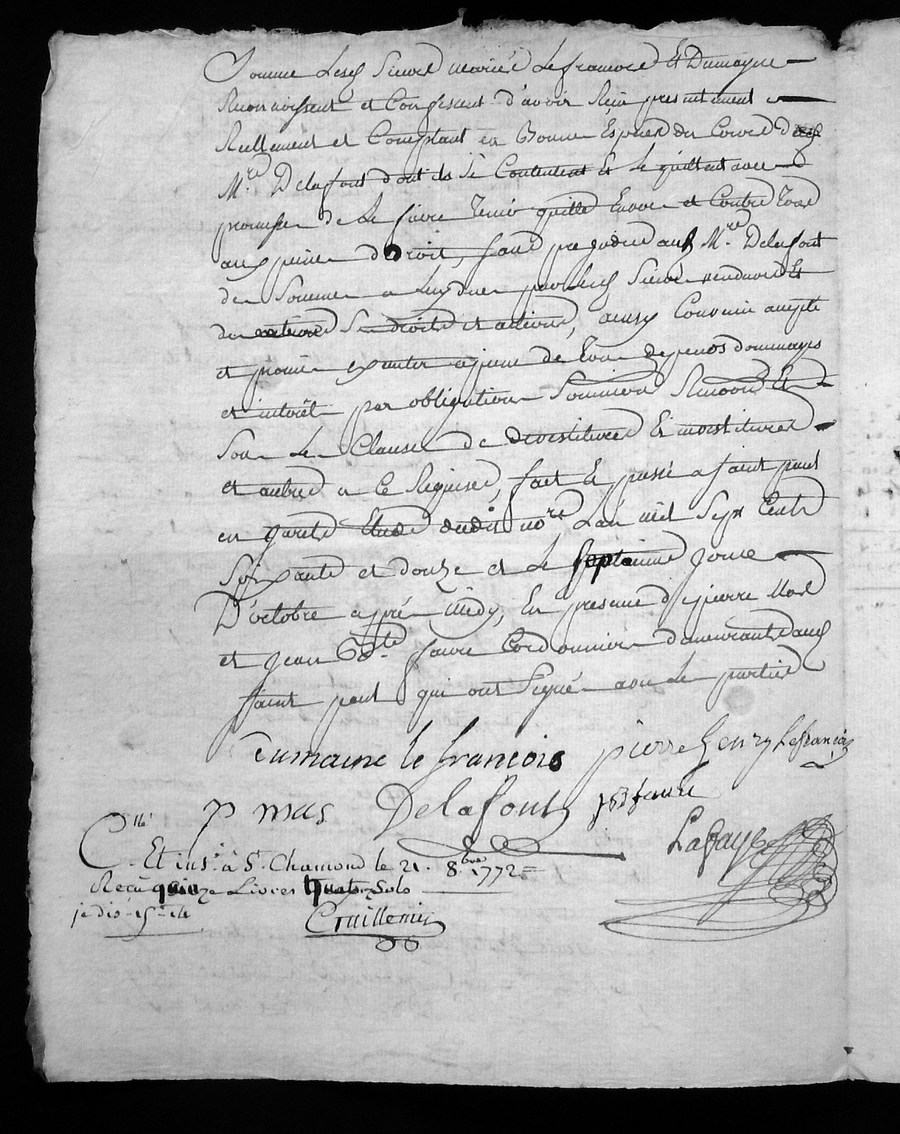 Somme Lesd Sieurs mariés Lefrancois Et Dumayne
Reconnoissent et Confessent d'avoir Reçu presentement
Reellement et Comptant en Bonnes Espèces du Cours dud
Mre Delafont dont ils se Contentent Et Le quittent avec
promesse de Le faire Tenir quitte Envers et Contre Tous
aux peines de droit, sans prejudice aud Mre Delafont
des Sommes a Luy dues par lesd Sieurs vendeurs Et
de Ses droits et actions, ainsy Convenu accepté
et promis executer a peine de Tous depens dommages
et interêts par obligations Soumissions Renons Et
Sous Les Clauses de devestitures Et investitures
et autres a Ce Requises, fait Et passé a Saint paul
en jarets Etude dudit nore L'an mil Sept Cents
Soixante et douze et Le septieme jour
D'octobre après midy, En presence de pierre Mas
et jean Bte faure Cordonnier demeurants aud
Saint paul qui ont Signé avec Les parties
Dumaine le francois pierre henry Lefrançois
p mas Delafont jb faure
Lafaye
C.lle Et ins.é à St. Chamond le 21. 8.bre 1772
Reçu quinze Livres quatorze Sols
je dis 15# 14s
Guillemin